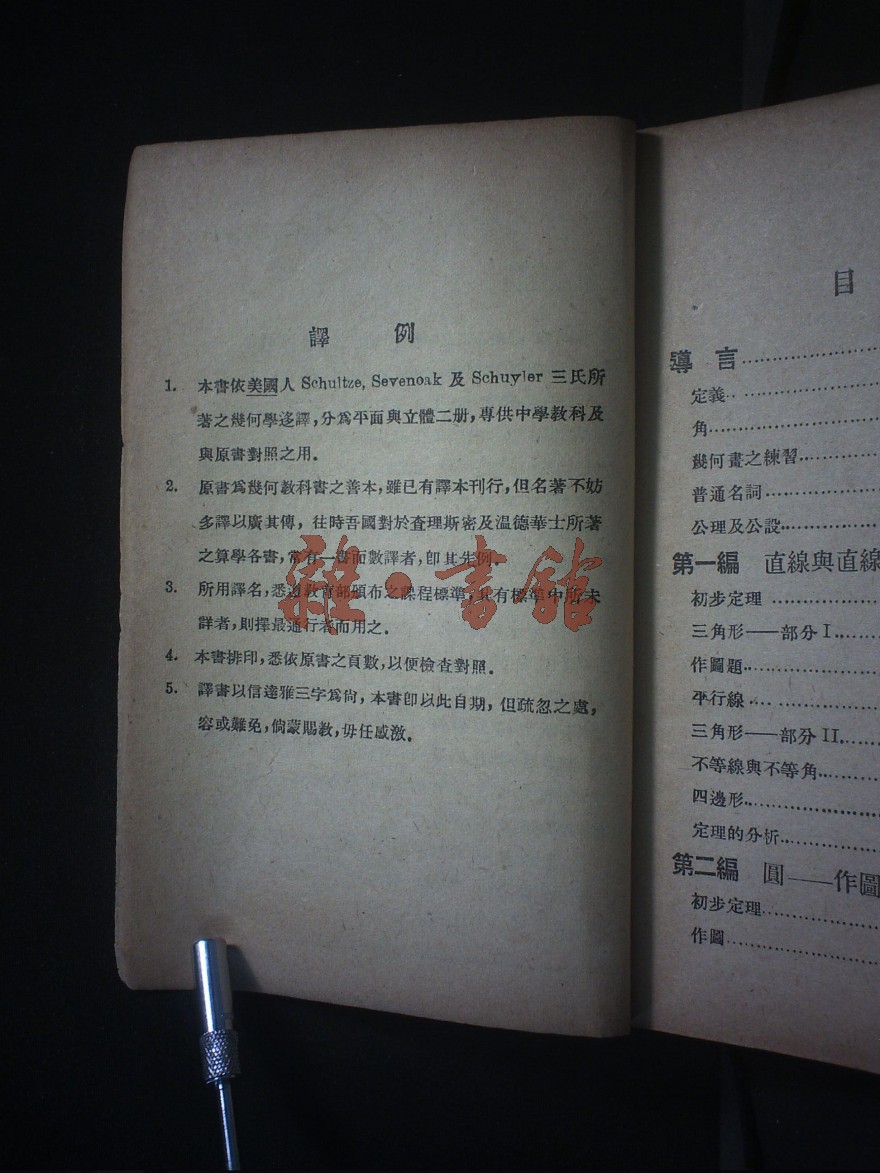 譯 例
1. 本書依美國人 Schultze, Sevenoak 及 Schuyler 三氏所
著之幾何學迻譯,分爲平面與立體二册,專供中學教科及
與原書對照之用.
2. 原書爲幾何教科書之善本,雖已有譯本刊行,但名著不妨
多譯以廣其傳,往時吾國對於查理斯密及溫德華士所著
之算學各書,常有一書而數譯者,卽其先例.
3. 所用譯名,悉遵教育部頒布之課程標準,其有標準中所未
詳者,則擇最通行者而用之.
4. 本書排印,悉依原書之頁數,以便檢查對照.
5. 譯書以信達雅三字爲尙,本書卽以此自期,但疏忽之處,
容或難免,倘蒙賜教,毋任感激.
雜·書館
目
導言
定義
角
幾何畫之練習
普通名詞
公理及公設
第一編 直線與直線
初步定理
三角形——部分 I
作圖題
平行線
三角形——部分 II
不等線與不等角
四邊形
定理的分析
第二編 圓——作圖
初步定理
作圖